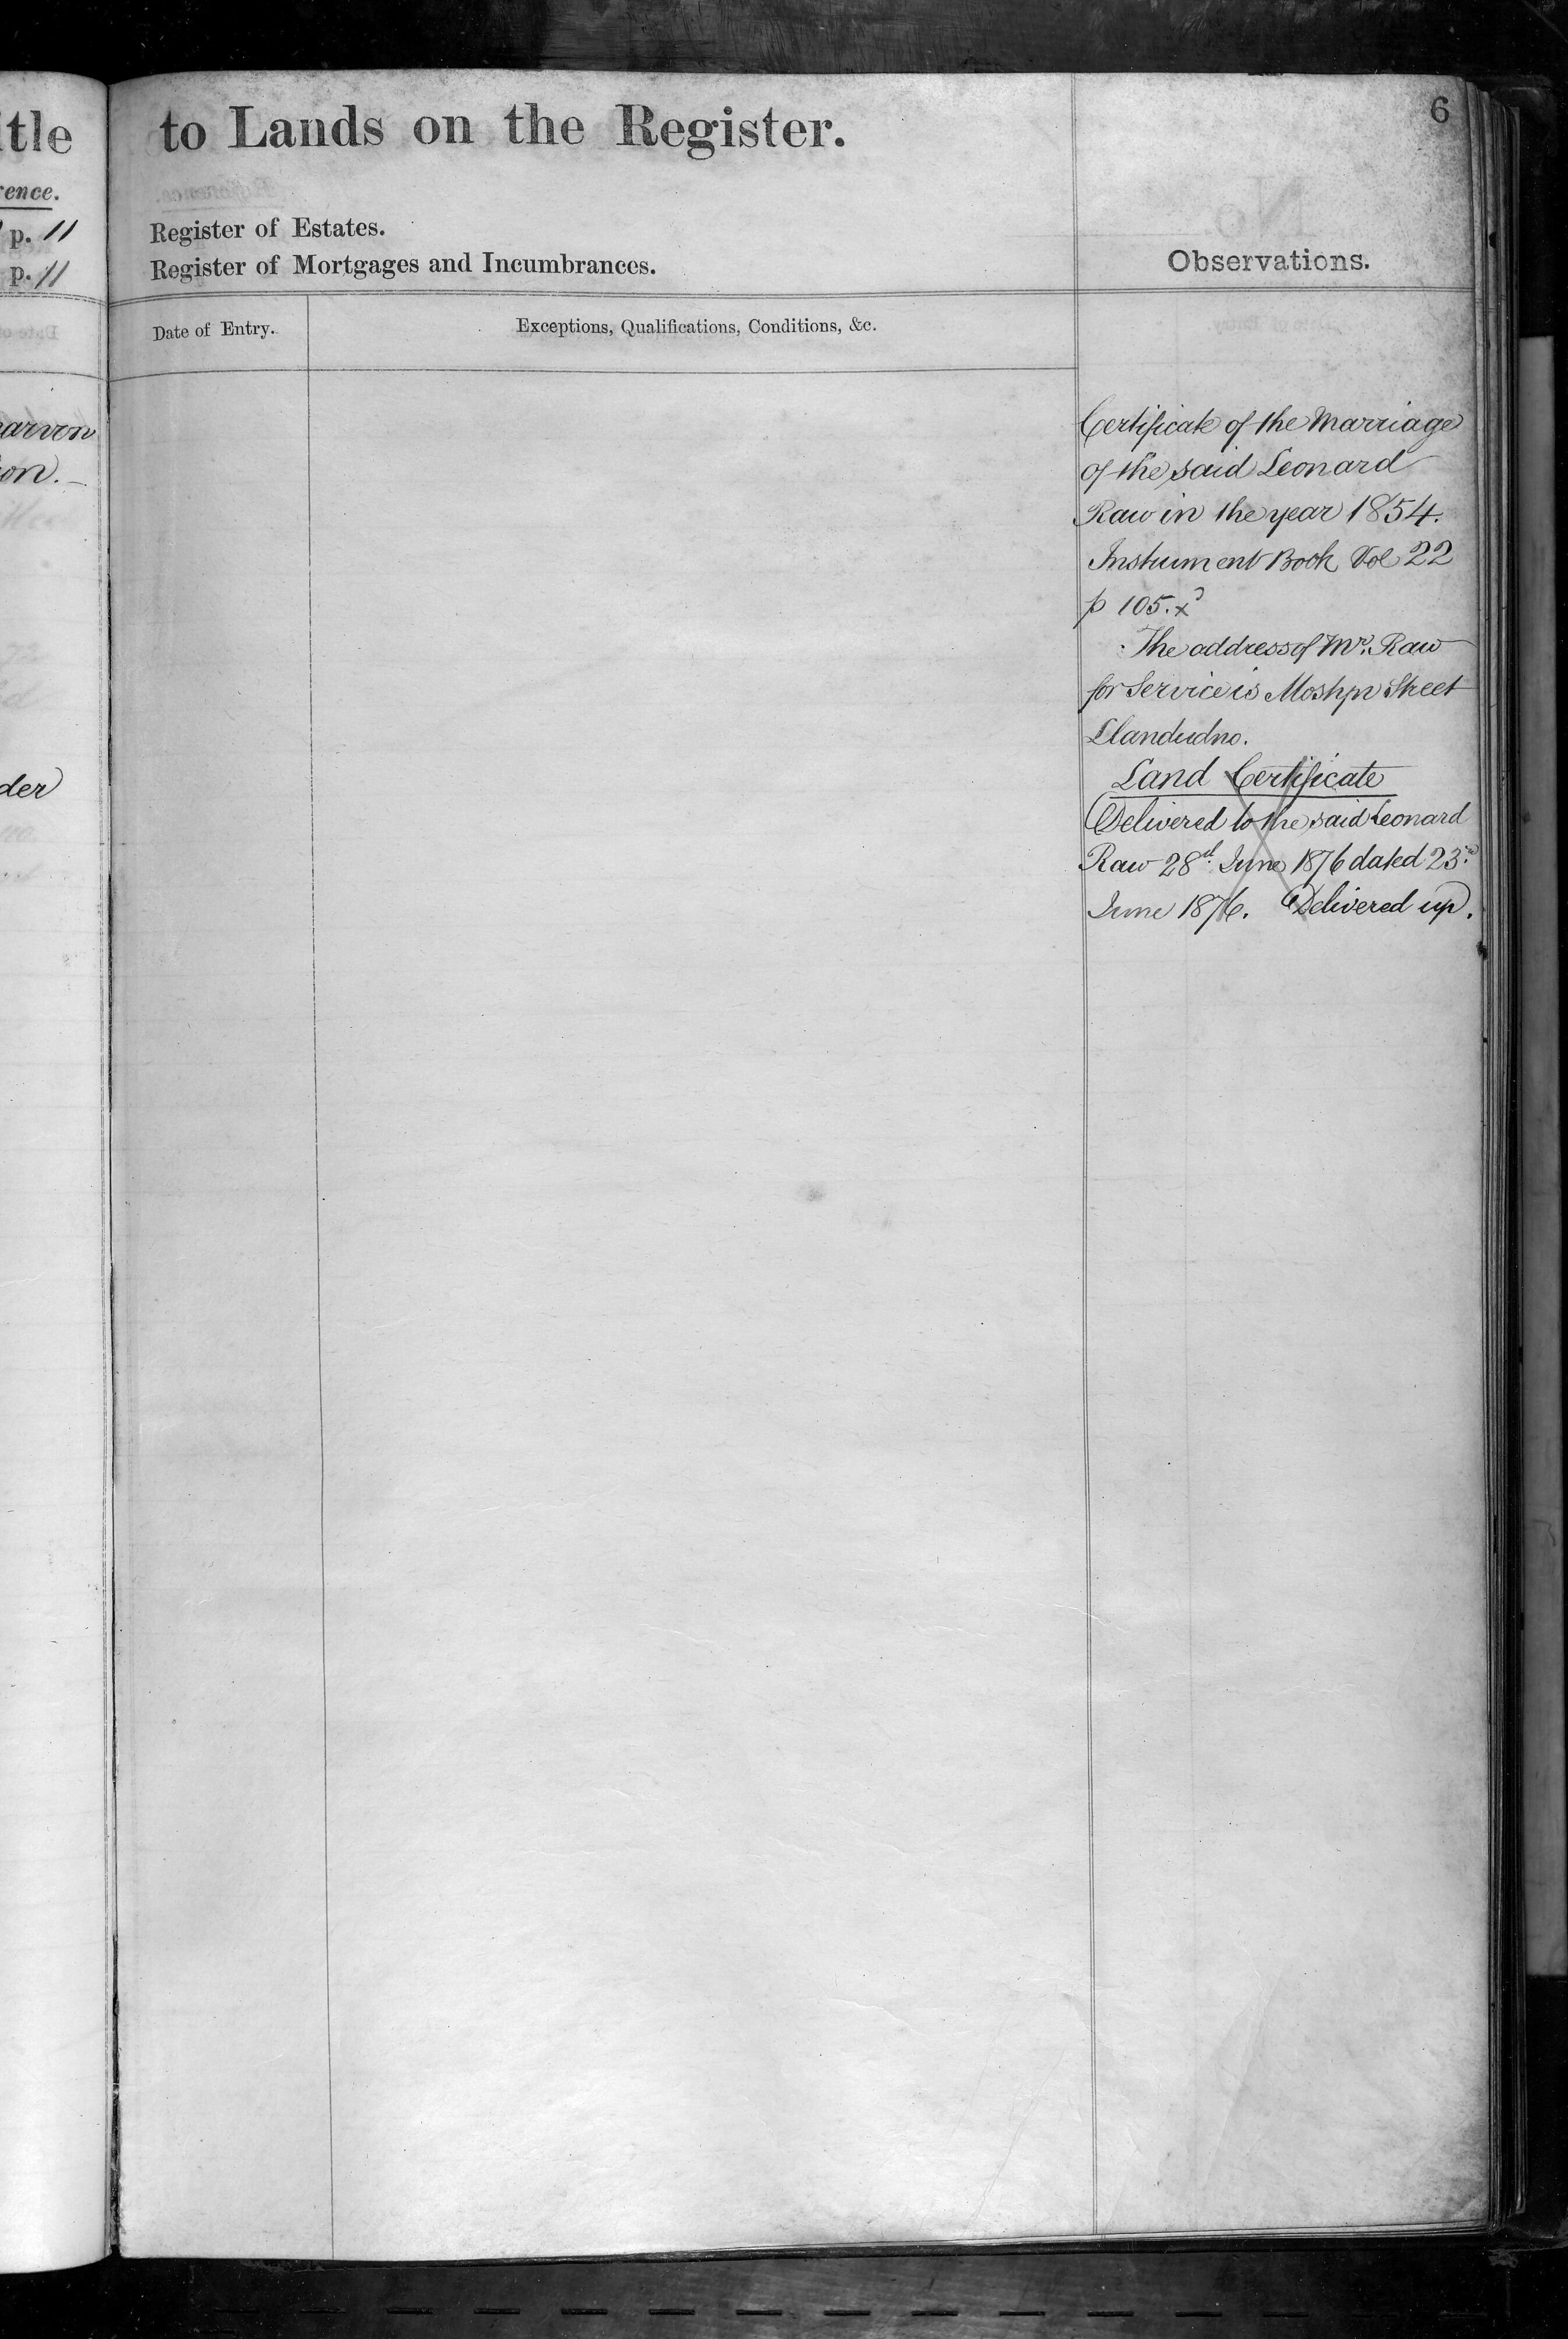 itle
rence.
p. 11
p. 11
arvon
on. –
der
to Lands on the Register.
6
Register of Estates.
Register of Mortgages and Incumbrances.
Observations.
Date of Entry.
Exceptions, Qualifications, Conditions, &c.
Certificate of the Marriage
of the said Leonard
Raw in the year 1854.
Instrument Book Vol 22
p 105. x
The address of Mr. Raw
for Service is Mostyn Street
Llandudno.
Land Certificate
Delivered to the said Leonard
Raw 28d. June 1876 dated 23rd
June 1876. Delivered up.